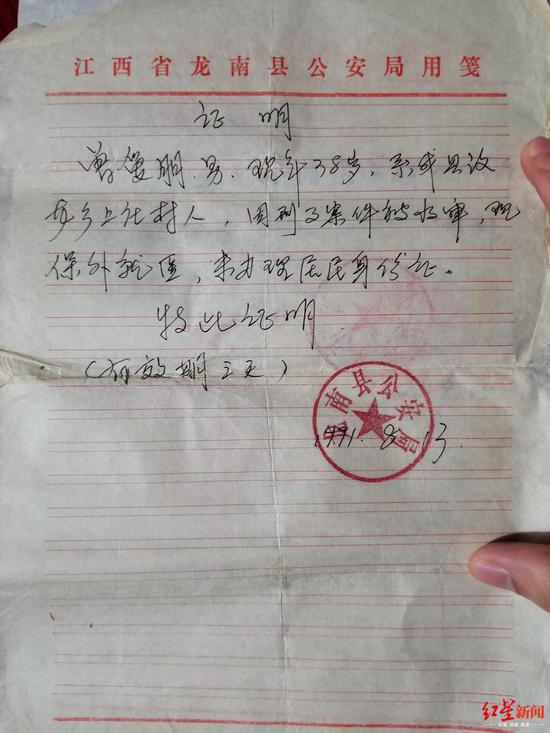 江西省龙南县公安局用笺
证明
曾明 男、现年38岁,系我县汶
龙乡上庄村人,因刑事案件被收审,现
保外就医,未办理居民身份证。
特此证明
(有效期三天)
龙南县公安局
1991.8.13.
红星新闻